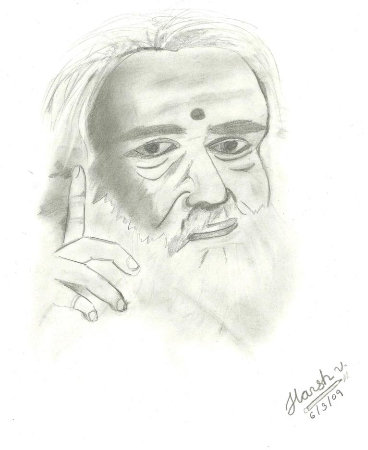 Harsh V.
6/3/09